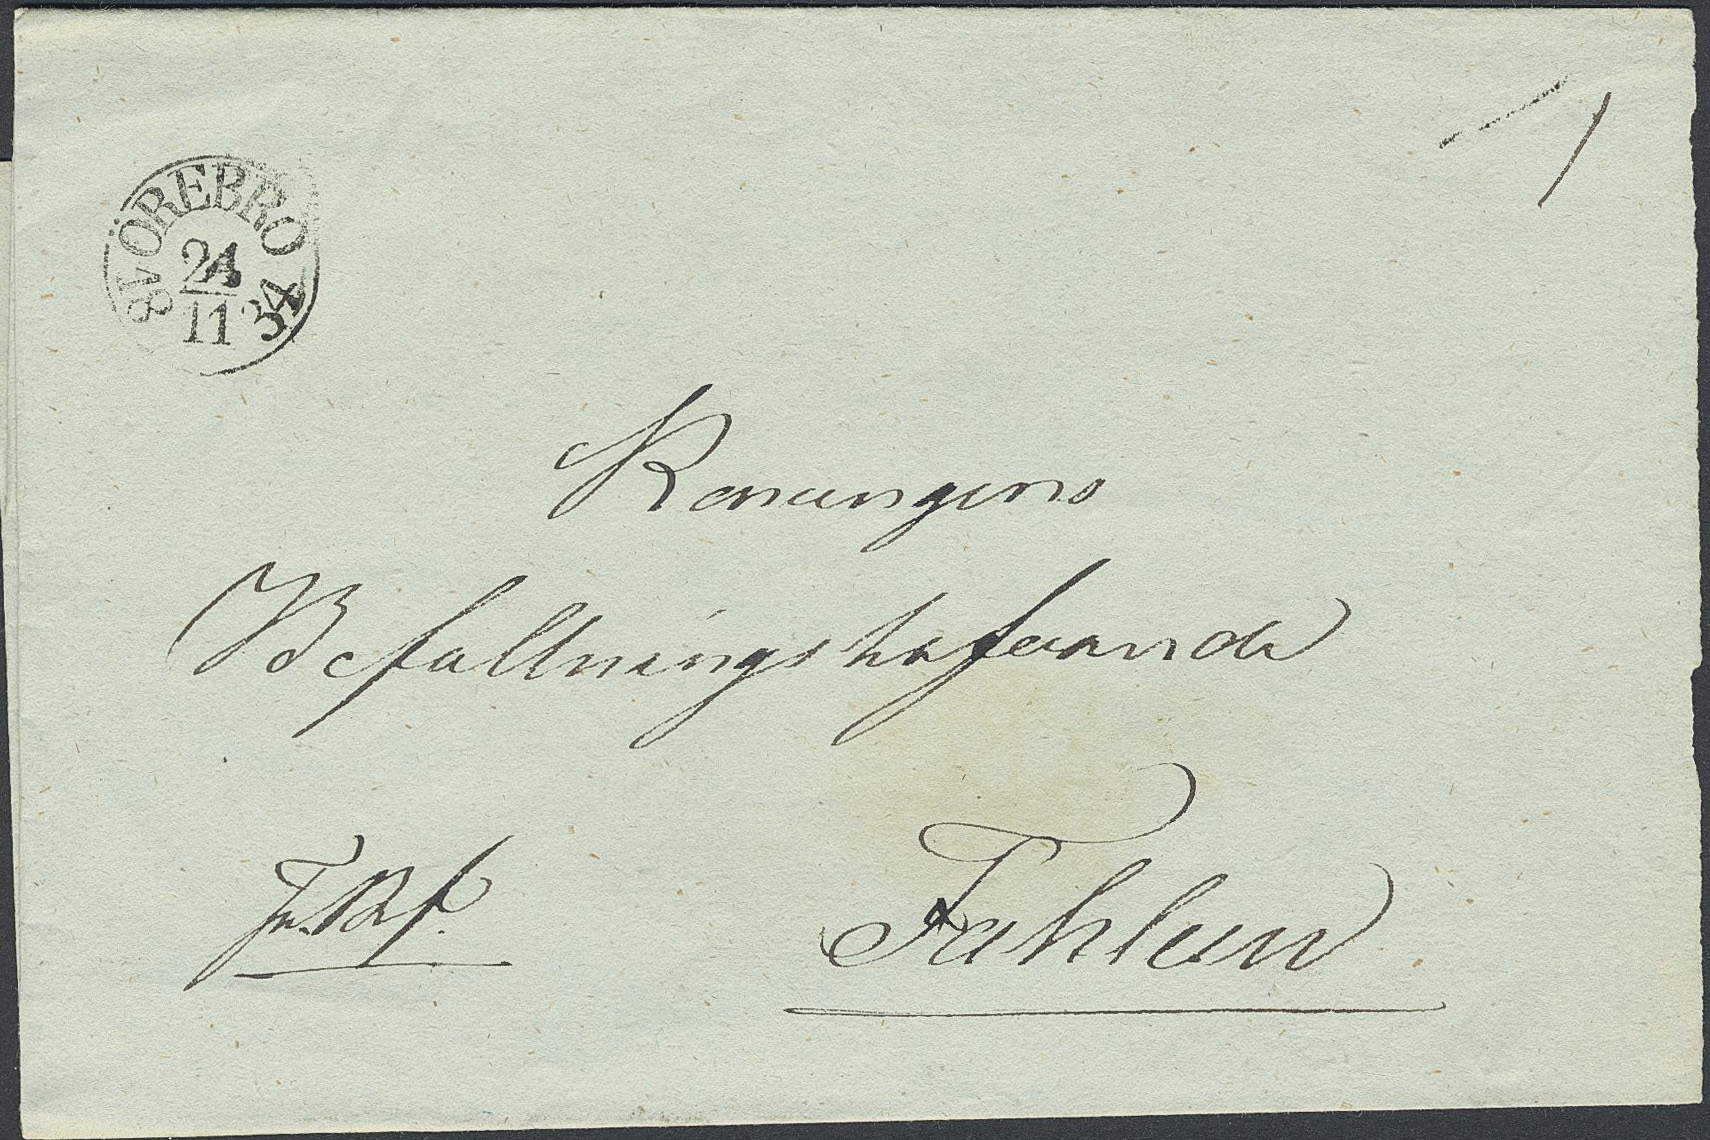 ÖREBRO
24
11
18 34
Konungens
Befallningshafvande
Fahlun